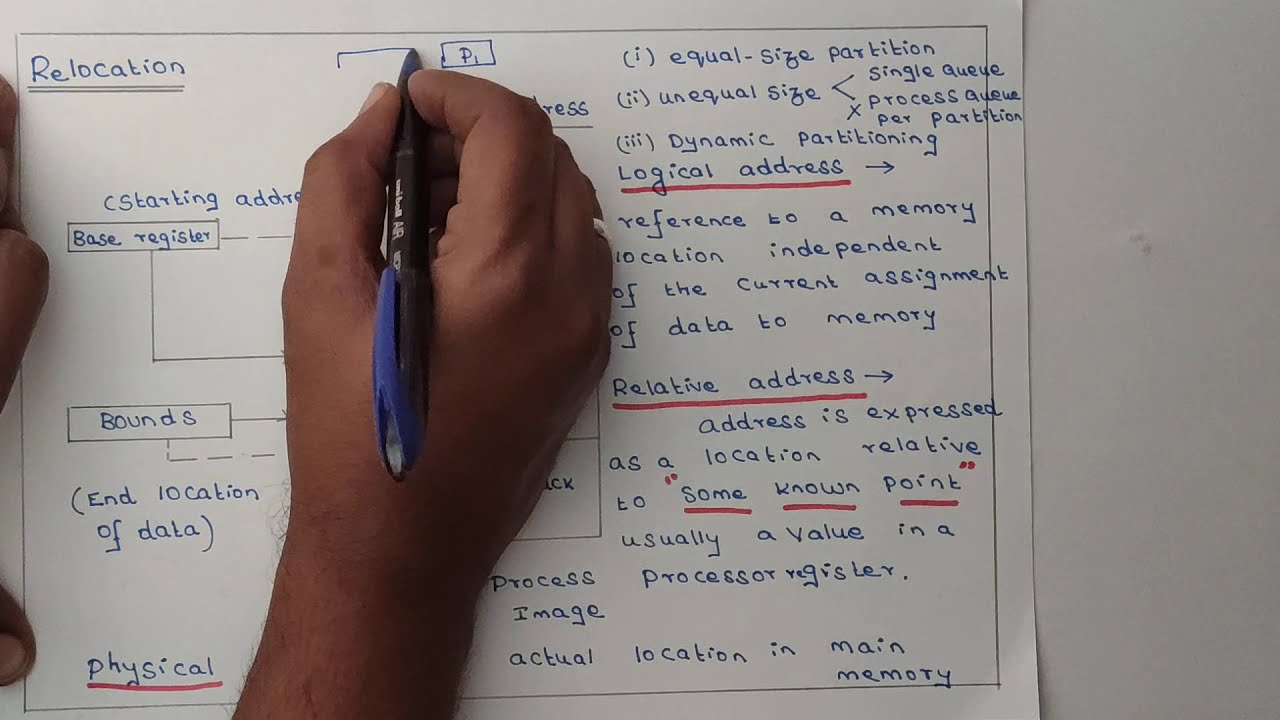 Relocation
P1
(Starting
Base register
Bounds
(End location
of data)
Process
Image
Physical
(i) equal-size partition
(ii) unequal size
single queue
x process queue
per partition
(iii) Dynamic partitioning
Logical address →
reference to a memory
location independent
of the current assignment
of data to memory
Relative address →
address is expressed
as a location relative
to "some known point"
usually a value in a
processor register.
actual location in main
memory